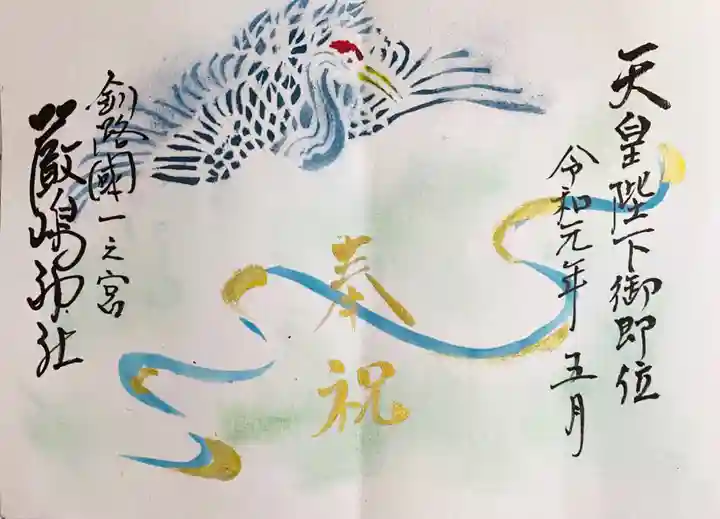 天皇陛下御即位
令和元年 五月
奉祝
釧路國一之宮
厳嶋神社